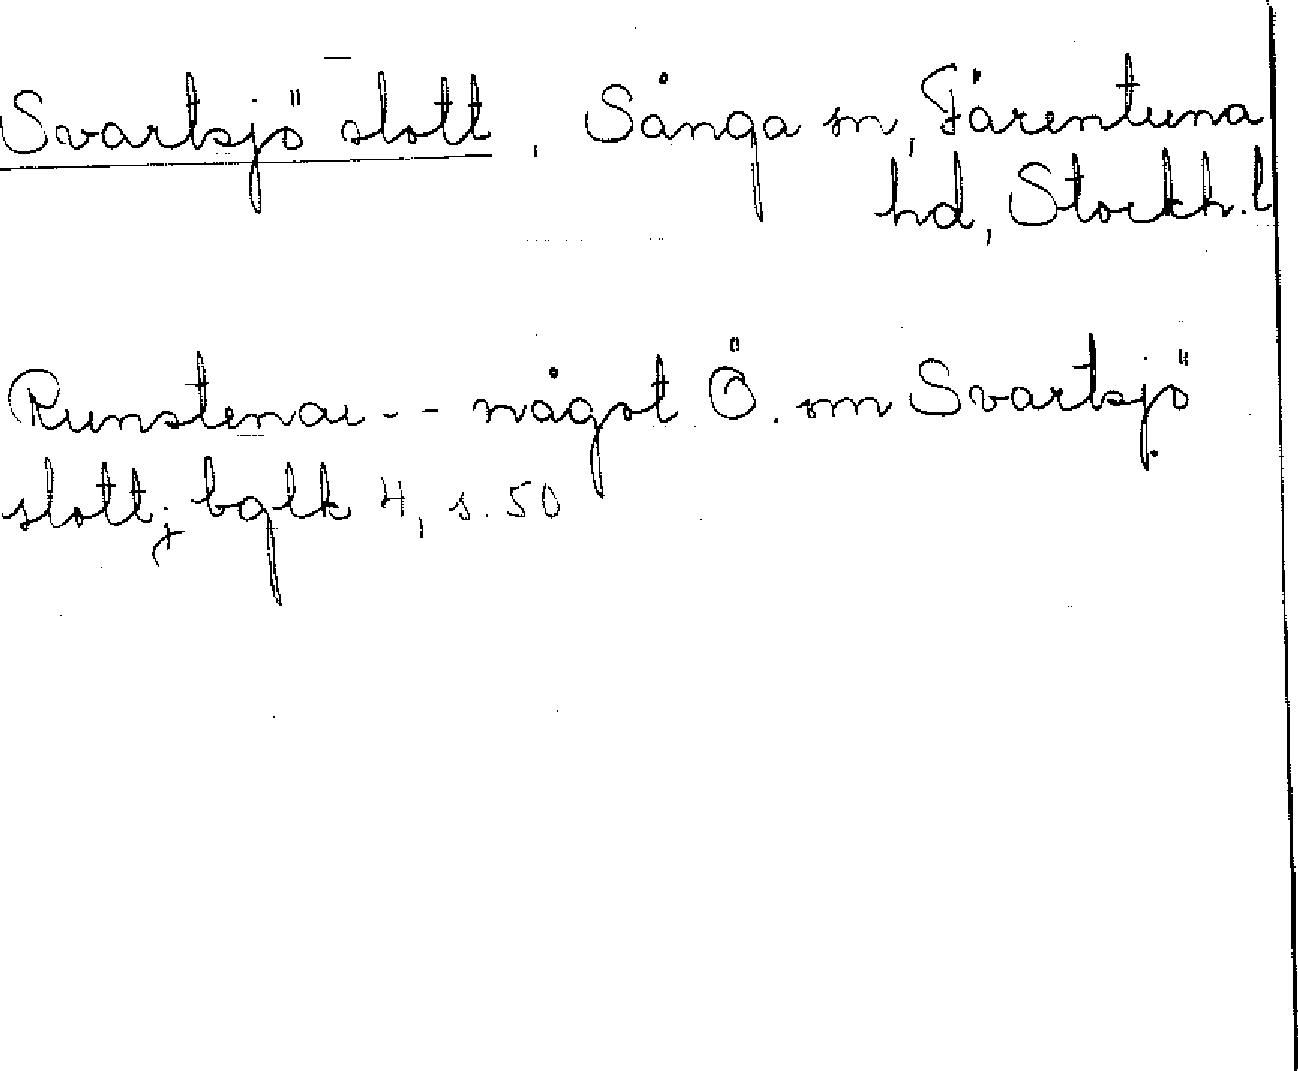 Svartsjö slott, Sånga sn, Färentuna
hd, Stockh. l
Runstenar -- något Ö. om Svartsjö
slott; bglk 4, s. 50